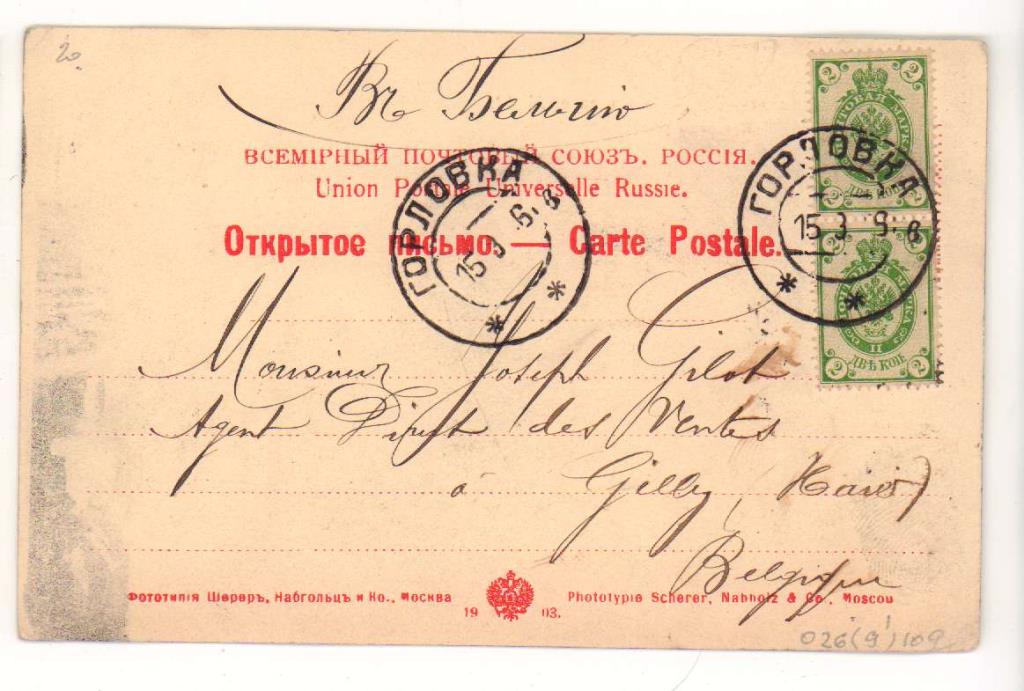 20
Въ Бельгію
ВСЕМІРНЫЙ ПОЧТОВЫЙ СОЮЗЪ. РОССІЯ.
Union Postale Universelle Russie.
Открытое письмо. — Carte Postale.
ГОРЛОВКА
15 3
ГОРЛОВКА
15 3
2 2
ПОЧТОВАЯ МАРКА
ДВѢ КОП
2 2
II
ДВѢ КОП.
2 2
Monsieur Joseph Gilot
Agent Direct des Ventes
à Gilly (
Belgique
Фототипія Шереръ, Набгольцъ и Ко., Москва
19 03.
Phototypie Scherer, Nabholz & Co., Moscou
026(9')109